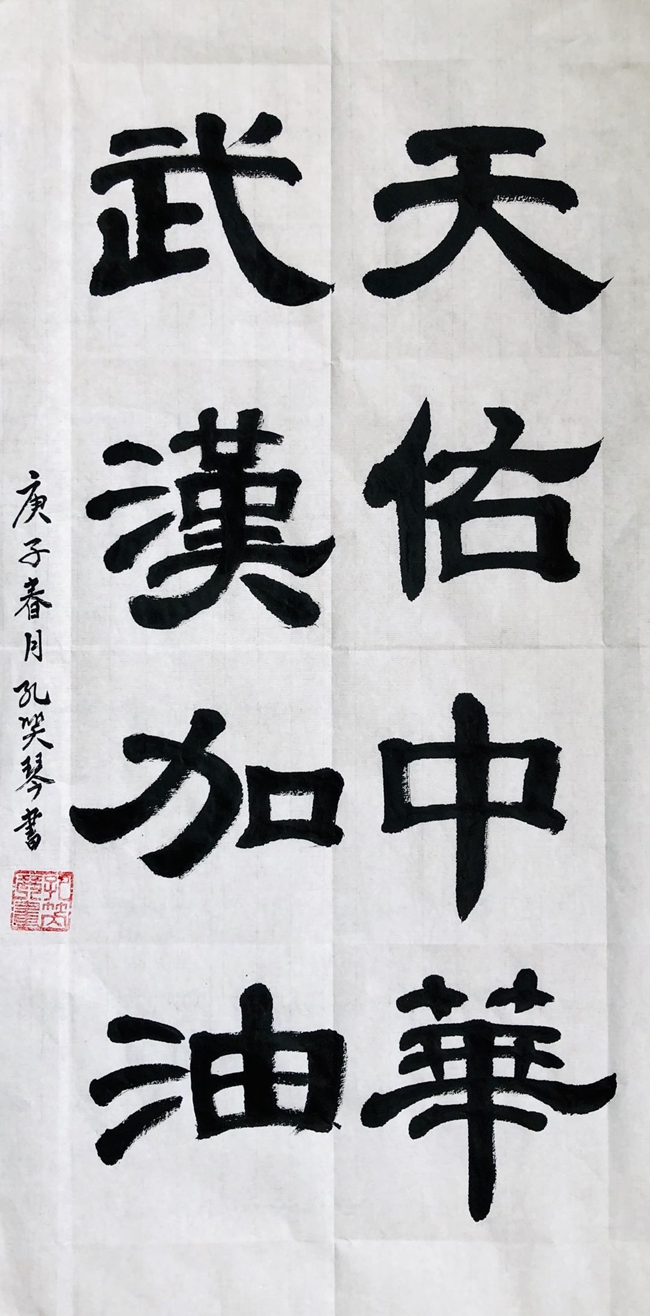 天佑中華
武漢加油
庚子春月孔笑琴書